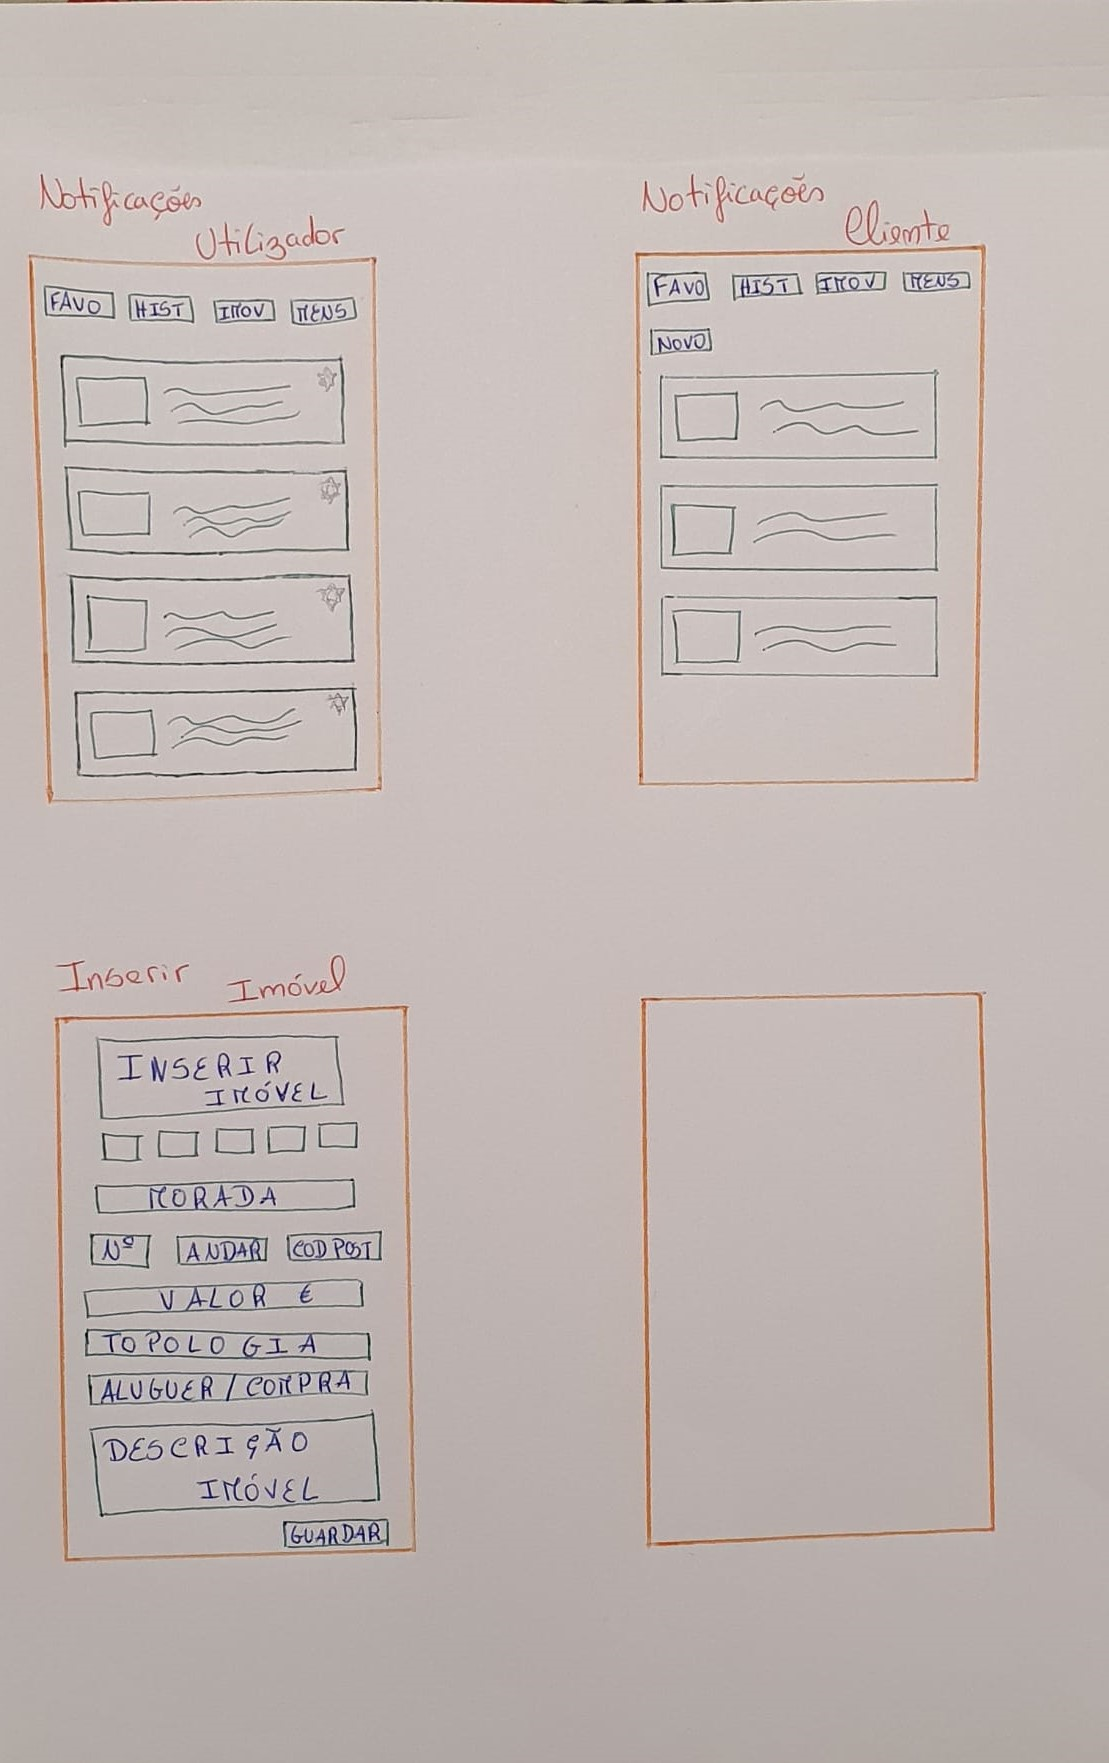 Notificações
Utilizador
FAVO HIST IMOV MENS
Notificações
Cliente
FAVO HIST IMOV MENS
NOVO
Inserir Imóvel
INSERIR
IMÓVEL
MORADA
Nº ANDAR COD POST
VALOR €
TOPOLOGIA
ALUGUER / COMPRA
DESCRIÇÃO
IMÓVEL
GUARDAR